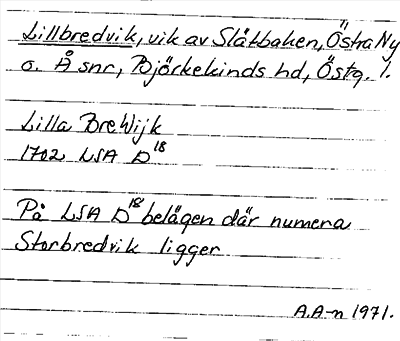 Lillbredvik, vik av Slätbaken, Östra Ny
o. Å snr, Björkekinds hd, Östg. l.
Lilla Bre Wijk
1702 LSA D¹⁸
På LSA D¹⁸ belägen där numera
Storbredvik ligger
A.A-n 1971.